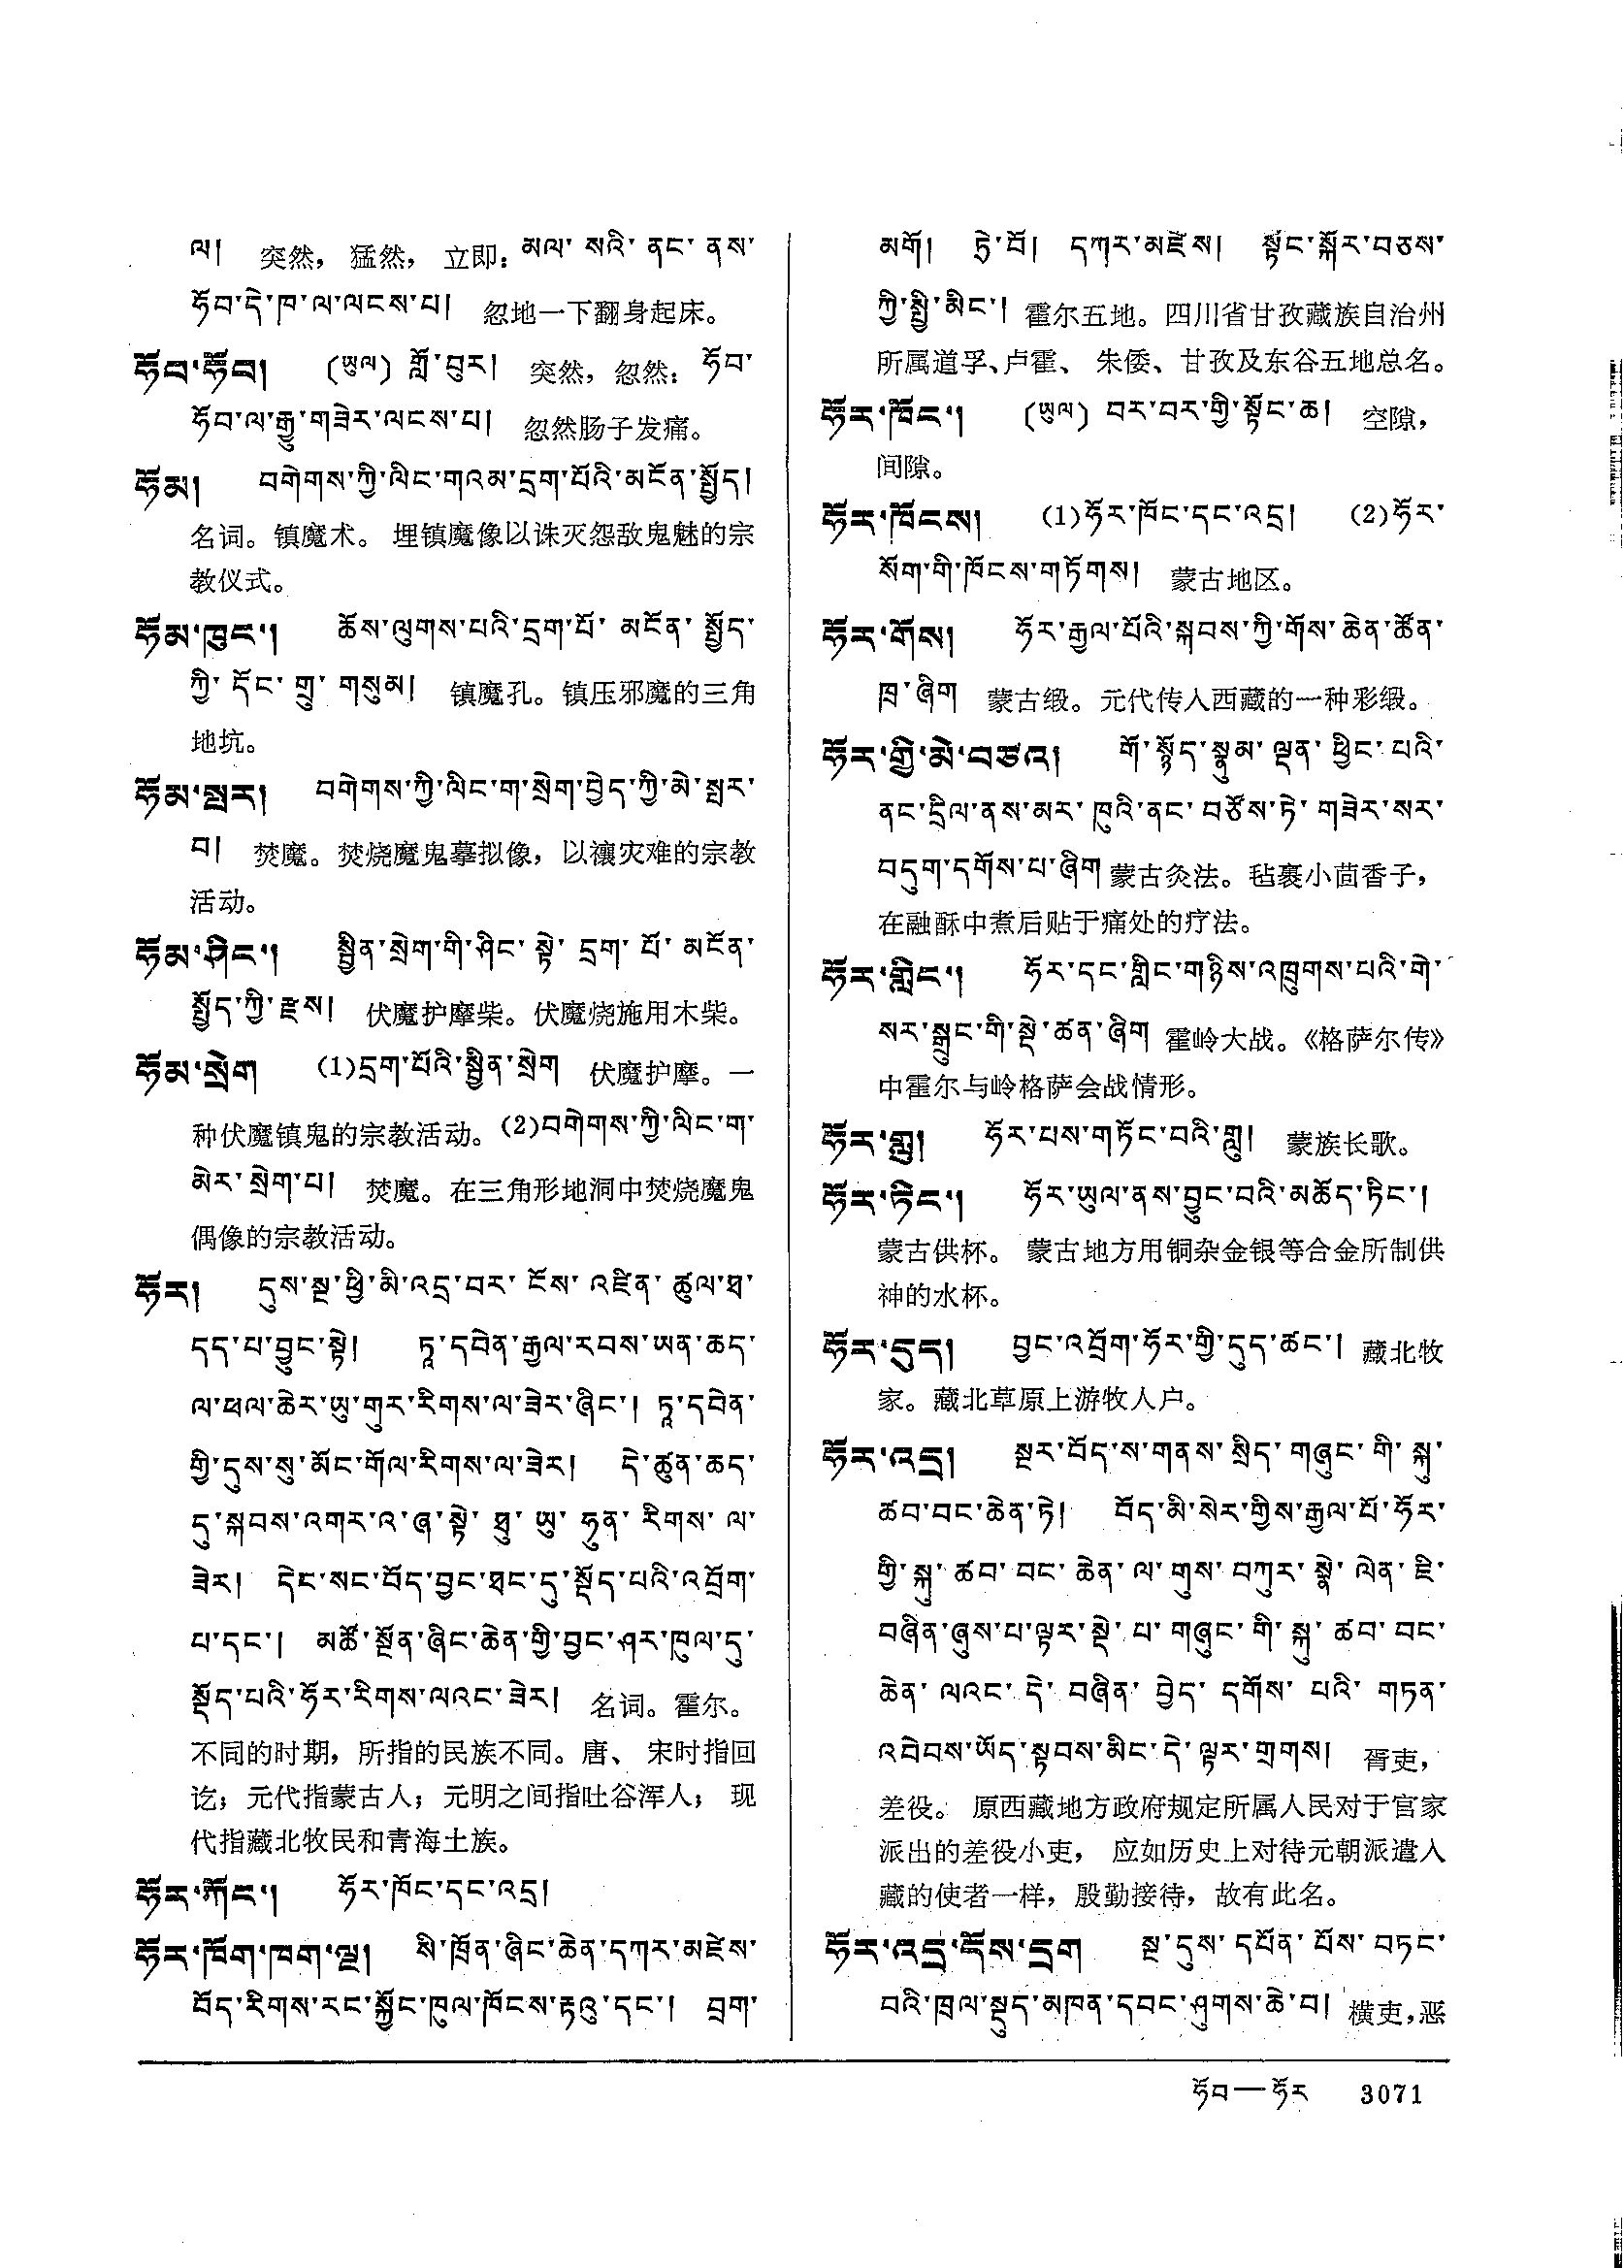 ལ། 突然，猛然，立即：མལ་ སའི་ ནང་ ནས་
ཧོབ་དེ་ཁ་ལ་ལངས་པ། 忽地一下翻身起床。
ཧོབ་ཧོབ། (ཡུལ) གློ་བུར། 突然，忽然：ཧོབ་
ཧོབ་ལ་རྒྱུ་གཟེར་ལངས་པ། 忽然肠子发痛。
ཧོམ། བགེགས་ཀྱི་ལིང་གའམ་དྲག་པོའི་མངོན་སྤྱོད།
名词。镇魔术。埋镇魔像以诛灭怨敌鬼魅的宗
教仪式。
ཧོམ་ཁུང་། ཆོས་ལུགས་པའི་དྲག་པོ་ མངོན་ སྤྱོད་
ཀྱི་ དོང་ གྲུ་ གསུམ། 镇魔孔。镇压邪魔的三角
地坑。
ཧོམ་སྦར། བགེགས་ཀྱི་ལིང་ག་སྲེག་བྱེད་ཀྱི་མེ་སྦར་
བ། 焚魔。焚烧魔鬼摹拟像，以禳灾难的宗教
活动。
ཧོམ་ཤིང་། སྦྱིན་སྲེག་གི་ཤིང་ སྟེ་ དྲག་ པོ་ མངོན་
སྤྱོད་ཀྱི་རྫས། 伏魔护摩柴。伏魔烧施用木柴。
ཧོམ་སྲེག (1)དྲག་པོའི་སྦྱིན་སྲེག 伏魔护摩。一
种伏魔镇鬼的宗教活动。(2)བགེགས་ཀྱི་ལིང་ག་
མེར་ སྲེག་པ། 焚魔。在三角形地洞中焚烧魔鬼
偶像的宗教活动。
ཧོར། དུས་སྔ་ཕྱི་མི་འདྲ་བར་ ངོས་ འཛིན་ ཚུལ་ཐ་
དད་པ་བྱུང་སྟེ། ཏཱ་དབེན་རྒྱལ་རབས་ཡན་ཆད་
ལ་ཕལ་ཆེར་ཡུ་གུར་རིགས་ལ་ཟེར་ཞིང་། ཏཱ་དབེན་
གྱི་དུས་སུ་མོང་གོལ་རིགས་ལ་ཟེར། དེ་ཚུན་ཆད་
དུ་སྐབས་འགར་འ་ཞ་སྟེ་ ཐུ་ ཡུ་ ཧུན་ རིགས་ ལ་
ཟེར། དེང་སང་བོད་བྱང་ཐང་དུ་སྡོད་པའི་འབྲོག་
པ་དང་། མཚོ་སྔོན་ཞིང་ཆེན་གྱི་བྱང་ཤར་ཁུལ་དུ་
སྡོད་པའི་ཧོར་རིགས་ལའང་ཟེར། 名词。霍尔。
不同的时期，所指的民族不同。唐、宋时指回
讫；元代指蒙古人；元明之间指吐谷浑人；现
代指藏北牧民和青海土族。
ཧོར་ཀོང་། ཧོར་ཁོང་དང་འདྲ།
ཧོར་ཁོག་ཁག་ལྔ། སི་ཁྲོན་ཞིང་ཆེན་དཀར་མཛེས་
བོད་རིགས་རང་སྐྱོང་ཁུལ་ཁོངས་རྟའུ་དང་། བྲག་
མགོ། ཏྲེ་བོ། དཀར་མཛེས། སྟོང་སྐོར་བཅས་
ཀྱི་སྤྱི་མིང་། 霍尔五地。四川省甘孜藏族自治州
所属道孚、卢霍、朱倭、甘孜及东谷五地总名。
ཧོར་ཁོང་། (ཡུལ) བར་བར་གྱི་སྟོང་ཆ། 空隙，
间隙。
ཧོར་ཁོངས། (1)ཧོར་ཁོང་དང་འདྲ། (2)ཧོར་
སོག་གི་ཁོངས་གཏོགས། 蒙古地区。
ཧོར་གོས། ཧོར་རྒྱལ་པོའི་སྐབས་ཀྱི་གོས་ཆེན་ཚོན་
ཁྲ་ཞིག 蒙古缎。元代传入西藏的一种彩缎。
ཧོར་གྱི་མེ་བཙའ། གོ་སྙོད་སྣུམ་ ལྡན་ ཕྱིང་ པའི་
ནང་དྲིལ་ནས་མར་ ཁུའི་ནང་ བཙོས་ཏེ་ གཟེར་སར་
བདུག་དགོས་པ་ཞིག 蒙古灸法。毡裹小茴香子，
在融酥中煮后贴于痛处的疗法。
ཧོར་གླིང་། ཧོར་དང་གླིང་གཉིས་འཁྲུགས་པའི་གེ་
སར་སྒྲུང་གི་སྡེ་ཚན་ཞིག 霍岭大战。《格萨尔传》
中霍尔与岭格萨会战情形。
ཧོར་གླུ། ཧོར་པས་གཏོང་བའི་གླུ། 蒙族长歌。
ཧོར་ཏིང་། ཧོར་ཡུལ་ནས་བྱུང་བའི་མཆོད་ཏིང་།
蒙古供杯。蒙古地方用铜杂金银等合金所制供
神的水杯。
ཧོར་དུད། བྱང་འབྲོག་ཧོར་གྱི་དུད་ཚང་། 藏北牧
家。藏北草原上游牧人户。
ཧོར་འདྲ། སྔར་བོད་ས་གནས་ སྲིད་ གཞུང་ གི་ སྐུ་
ཚབ་བང་ཆེན་ཏེ། བོད་མི་སེར་གྱིས་རྒྱལ་པོ་ཧོར་
གྱི་ སྐུ་ ཚབ་ བང་ ཆེན་ ལ་ གུས་ བཀུར་ སྣེ་ ལེན་ ཇི་
བཞིན་ཞུས་པ་ལྟར་སྡེ་ པ་ གཞུང་ གི་ སྐུ་ ཚབ་ བང་
ཆེན་ ལའང་ དེ་ བཞིན་ བྱེད་ དགོས་ པའི་ གཏན་
འབེབས་ཡོད་སྟབས་མིང་ དེ་ ལྟར་གྲགས། 胥吏，
差役。原西藏地方政府规定所属人民对于官家
派出的差役小吏，应如历史上对待元朝派遣入
藏的使者一样，殷勤接待，故有此名。
ཧོར་འདྲ་ངོས་དྲག སྔ་དུས་ དཔོན་ པོས་ བཏང་
བའི་ཁྲལ་སྡུད་མཁན་དབང་ཤུགས་ཆེ་བ། 横吏，恶
ཧོབ—ཧོར 3071